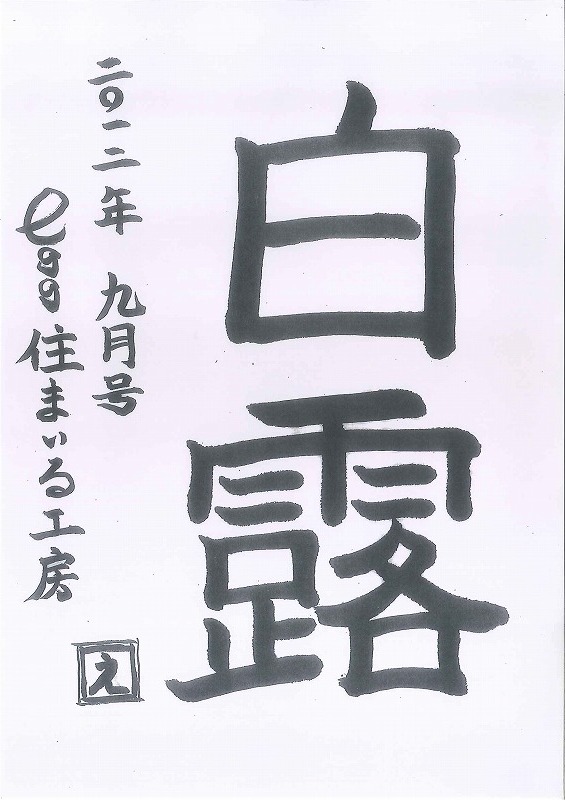 白露
二〇一二年 九月号
egg住まいる工房
え